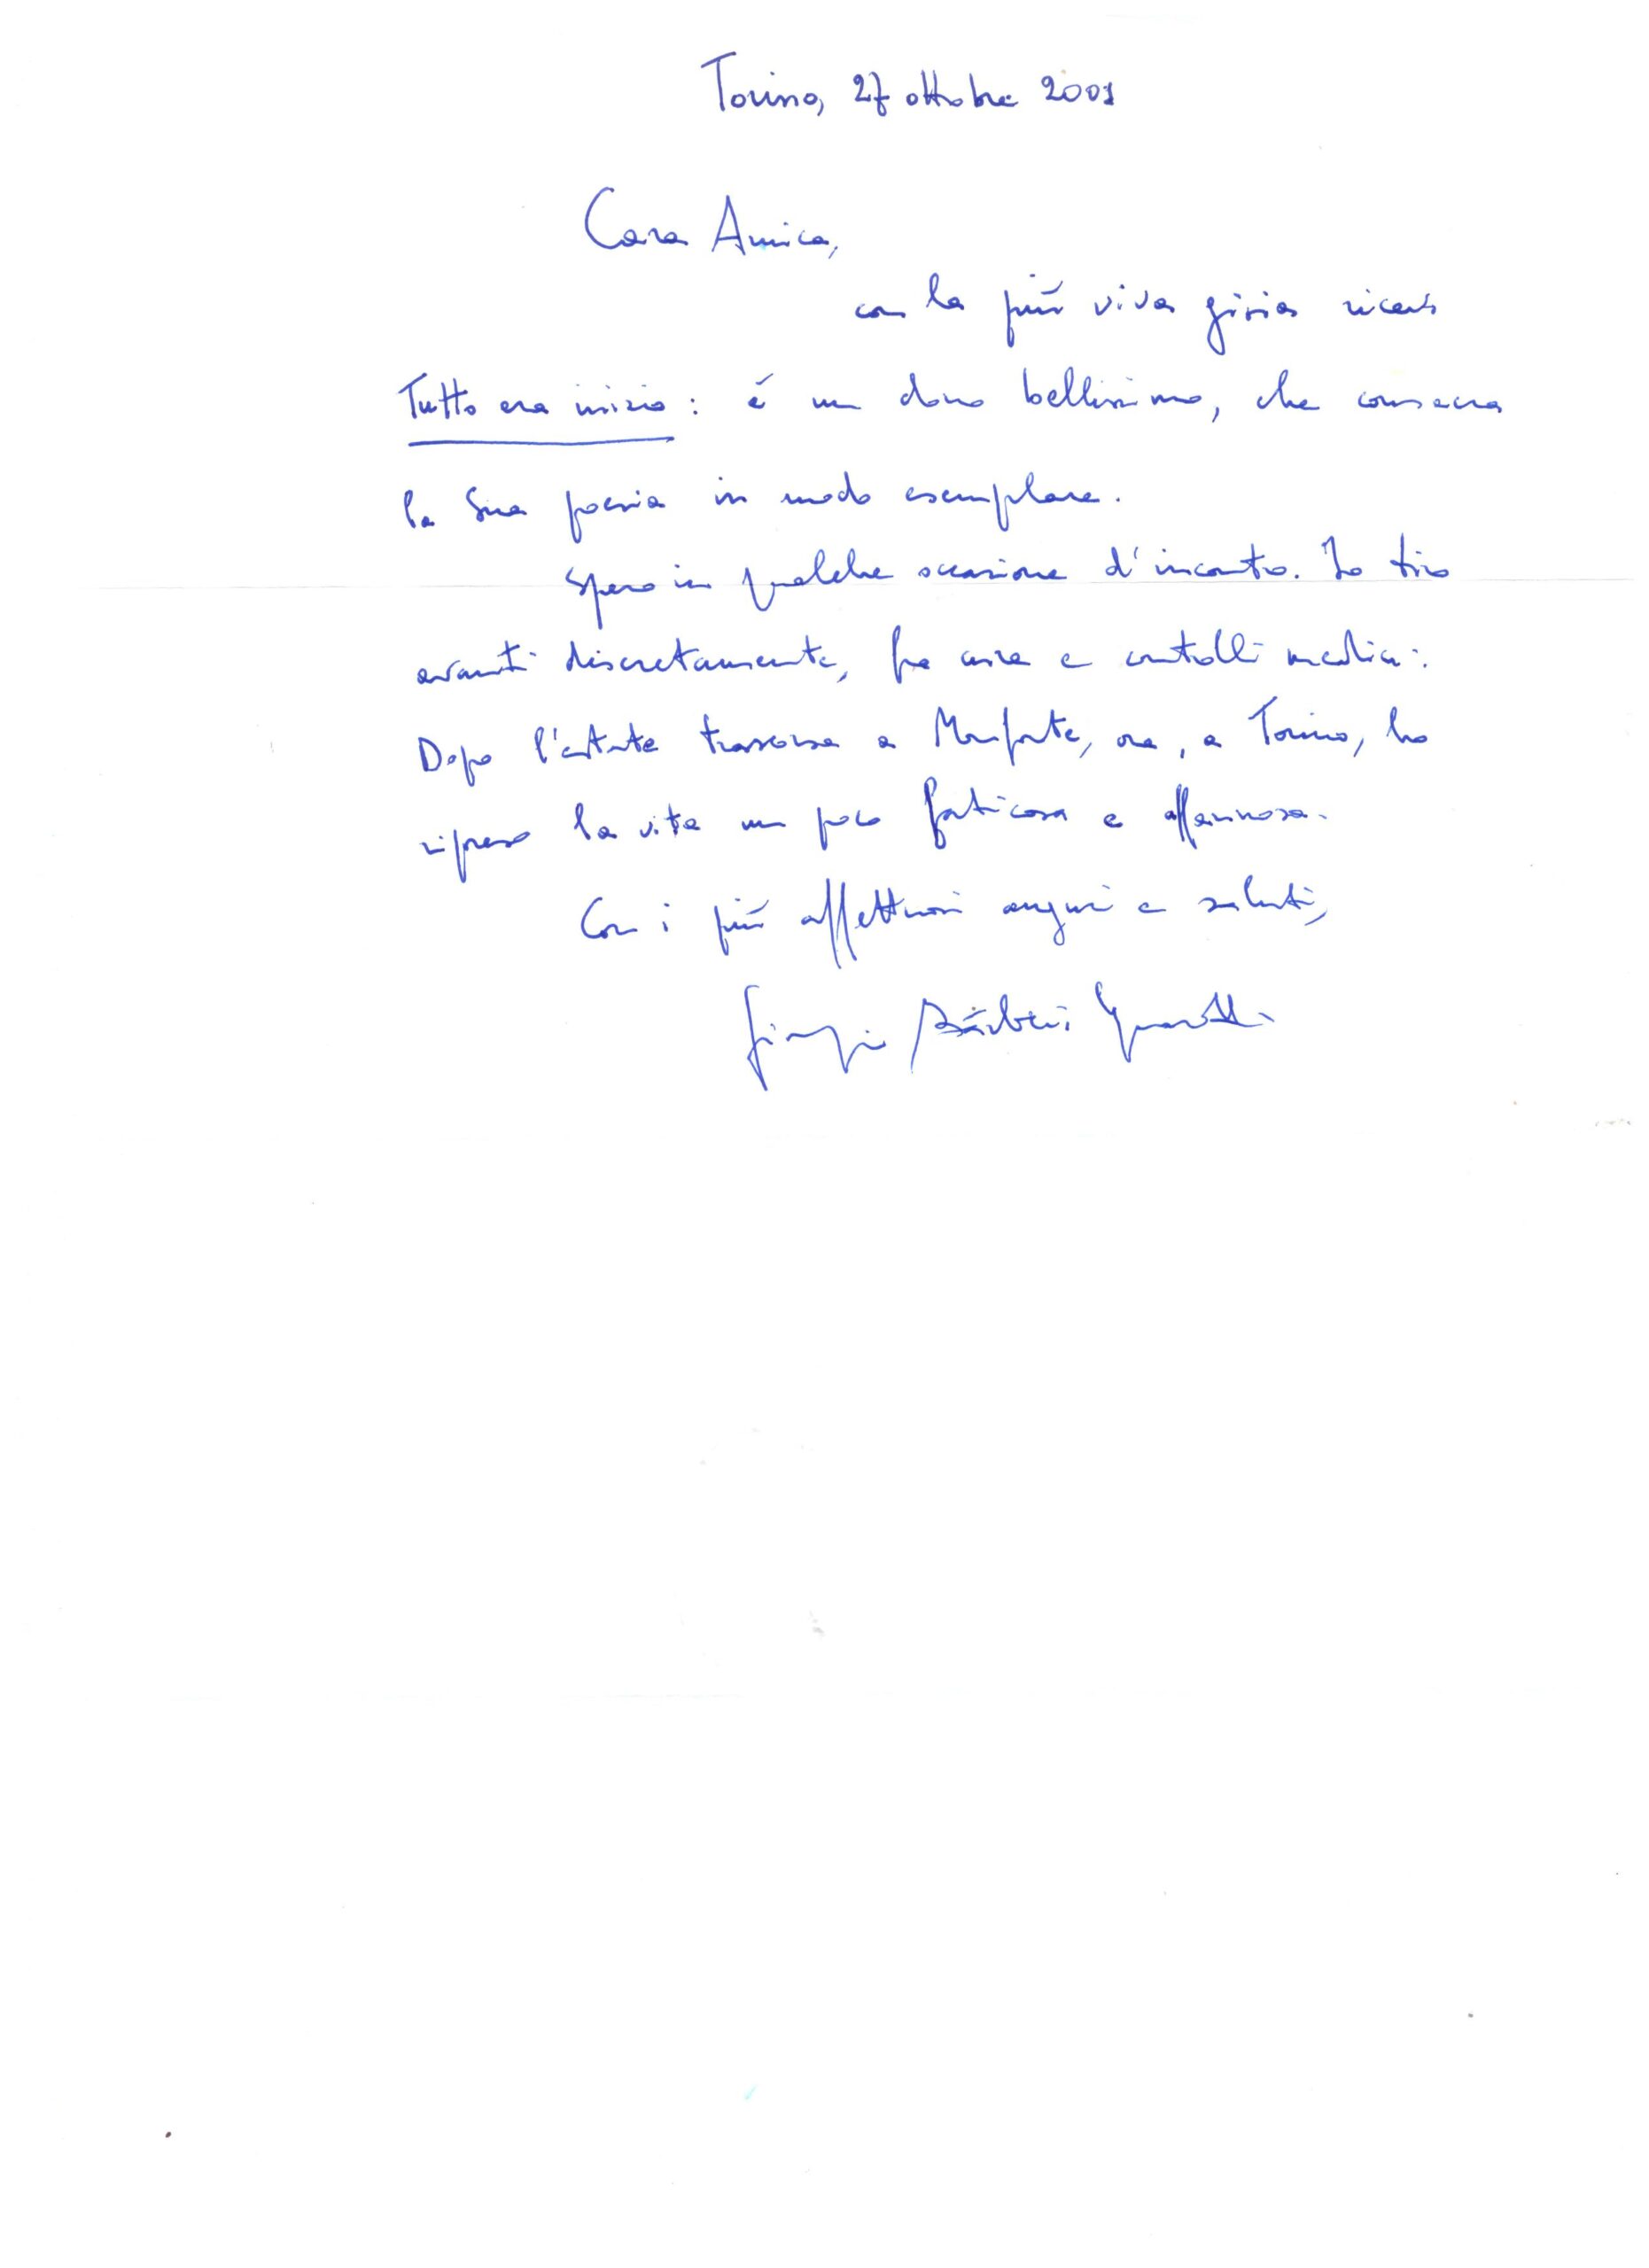 Torino, 27 ottobre 2001
Cara Amica,
con la più viva gioia ricevo
Tutto era inizio: è un dono bellissimo, che consacra
la Sua poesia in modo esemplare.
Spero in qualche occasione d'incontro. Io tiro
avanti discretamente, fra cure e controlli medici.
Dopo l'estate trascorsa a Monforte, ora, a Torino, ho
ripreso la vita un poco faticosa e affannosa.
Con i più affettuosi auguri e saluti,
Giorgio Bárberi Squarotti